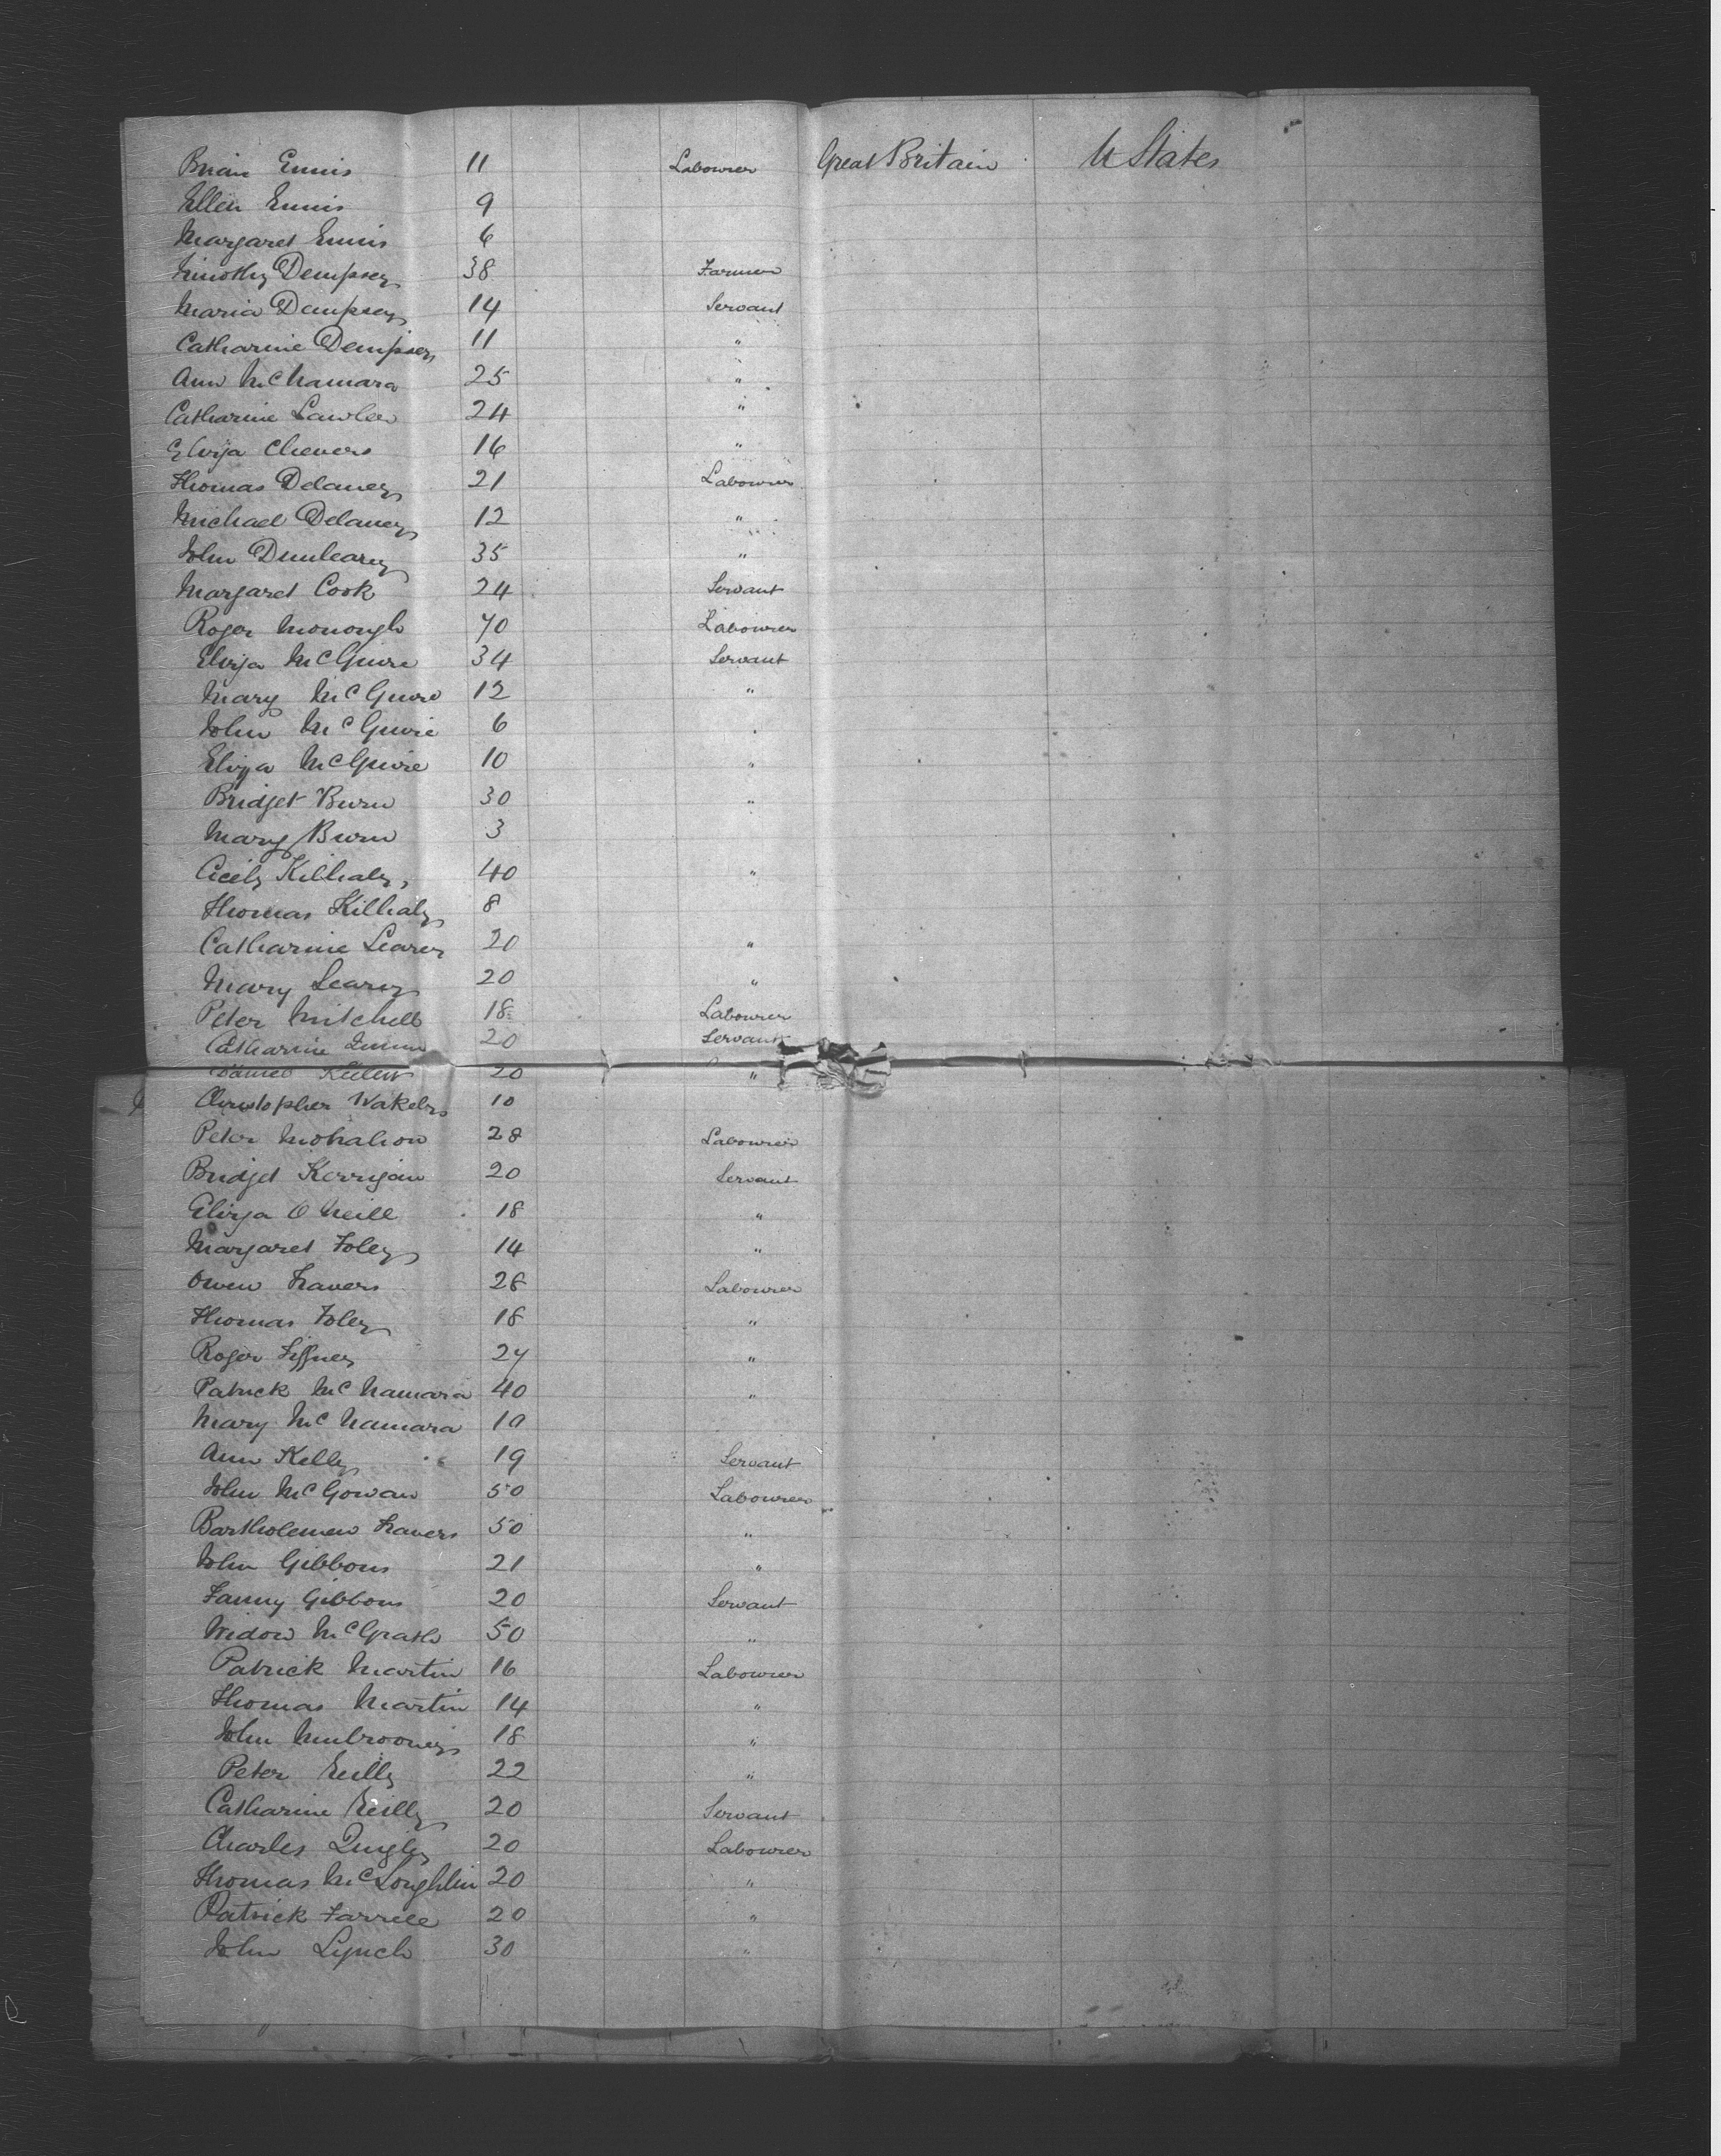 Brian Ennis 11 Labourer Great Britain U States
Ellen Ennis 9
Margaret Ennis 6
Timothy Dempsey 38 Farmer
Maria Dempsey 14 Servant
Catharine Dempsey 11 "
Ann McNamara 25 "
Catharine Lawler 24 "
Eliza Chevers 16 "
Thomas Delaney 21 Labourer
Michael Delaney 12 "
John Dunleary 35 "
Margaret Cook 24 Servant
Roger Monough 70 Labourer
Eliza McGuire 34 Servant
Mary McGuire 12 "
John McGuire 6 "
Eliza McGuire 10 "
Bridget Burn 30 "
Mary Burn 3
Cicily Kilhaly 40 "
Thomas Kilhaly 8
Catharine Leary 20 "
Mary Leary 20 "
Peter Mitchell 18 Labourer
Catharine 20 Servant
20 "
Christopher Wakely 10
Peter Mohahon 28 Labourer
Bridget Kerrigan 20 Servant
Eliza O Neill 18 "
Margaret Foley 14 "
Owen Travers 28 Labourer
Thomas Foley 18 "
Roger 24 "
Patrick McNamara 40 "
Mary McNamara 10
Ann Kelly 19 Servant
John McGowan 50 Labourer
Bartholemew Travers 50 "
John Gibbons 21 "
Fanny Gibbons 20 Servant
Widow McGrath 50 "
Patrick Martin 16 Labourer
Thomas Martin 14 "
John Mulrooney 18 "
Peter Reilly 22 "
Catharine Reilly 20 Servant
Charles Quigly 20 Labourer
Thomas McLoughlin 20 "
Patrick Farrell 20 "
John Lynch 30 "